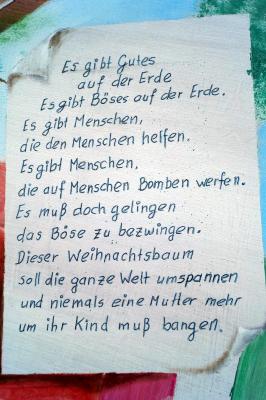 Es gibt Gutes
auf der Erde
Es gibt Böses auf der Erde.
Es gibt Menschen,
die den Menschen helfen.
Es gibt Menschen,
die auf Menschen Bomben werfen.
Es muß doch gelingen
das Böse zu bezwingen.
Dieser Weihnachtsbaum
soll die ganze Welt umspannen
und niemals eine Mutter mehr
um ihr Kind muß bangen.